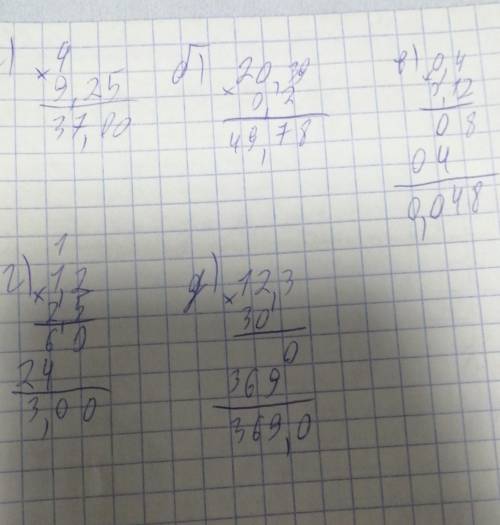 ) 4
× 9,25
37,00
б) 20,39
× 0,2
49,78
в) 0,4
× 0,12
08
04
0,048
1
г) 1,2
× 2,5
60
24
3,00
д) 12,3
× 30
0
369
369,0